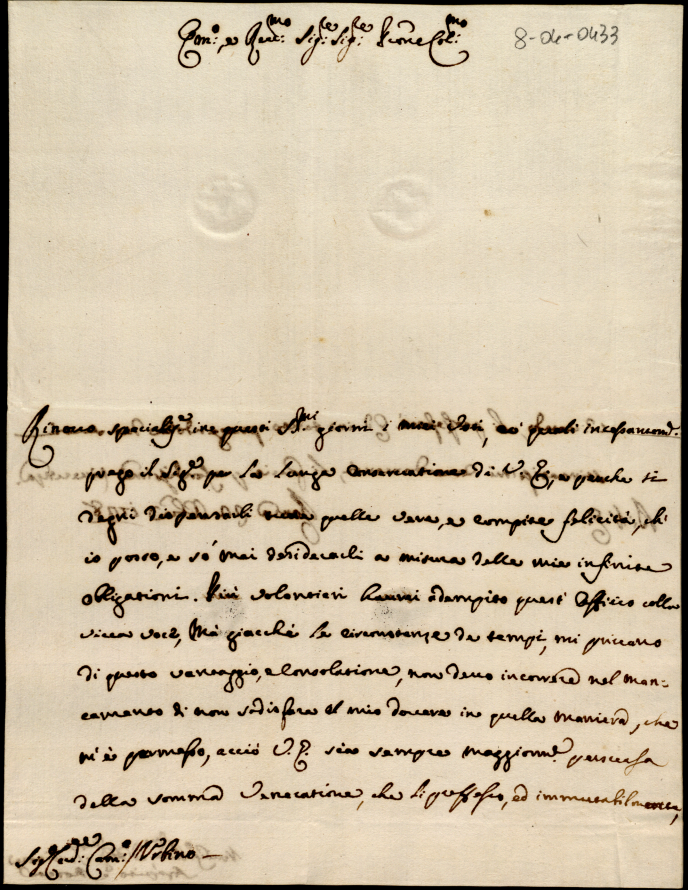 Em:º e Rev:mo Sig:re Sig:re P'rone Col:mo
8-04-0433
Rinovo specialm:te in questi S:mi giorni i miei voti, co' quali incessantem:e
prego il Sig:re per la lunga conservatione di V. E., e perche si
degni dispensarli tutte quelle vere, e compite felicità, ch'
io posso, e sò mai desiderarli a misura delle mie infinite
obligationi. Più volontieri haurei adempito quest' officio colla
viva voce, Mà giacchè le circonstanze de tempi, mi privano
di questo vantaggio, e Consolatione, non devo incorrere nel man-
camento di non sodisfare al mio dovere in quella maniera, che
m' è permesso, acciò V. E. sia sempre maggiorm:e persuasa
della somma Veneratione, che li professo, ed immutabilmente,
Sig:re Card: Cam:º / Urbino —